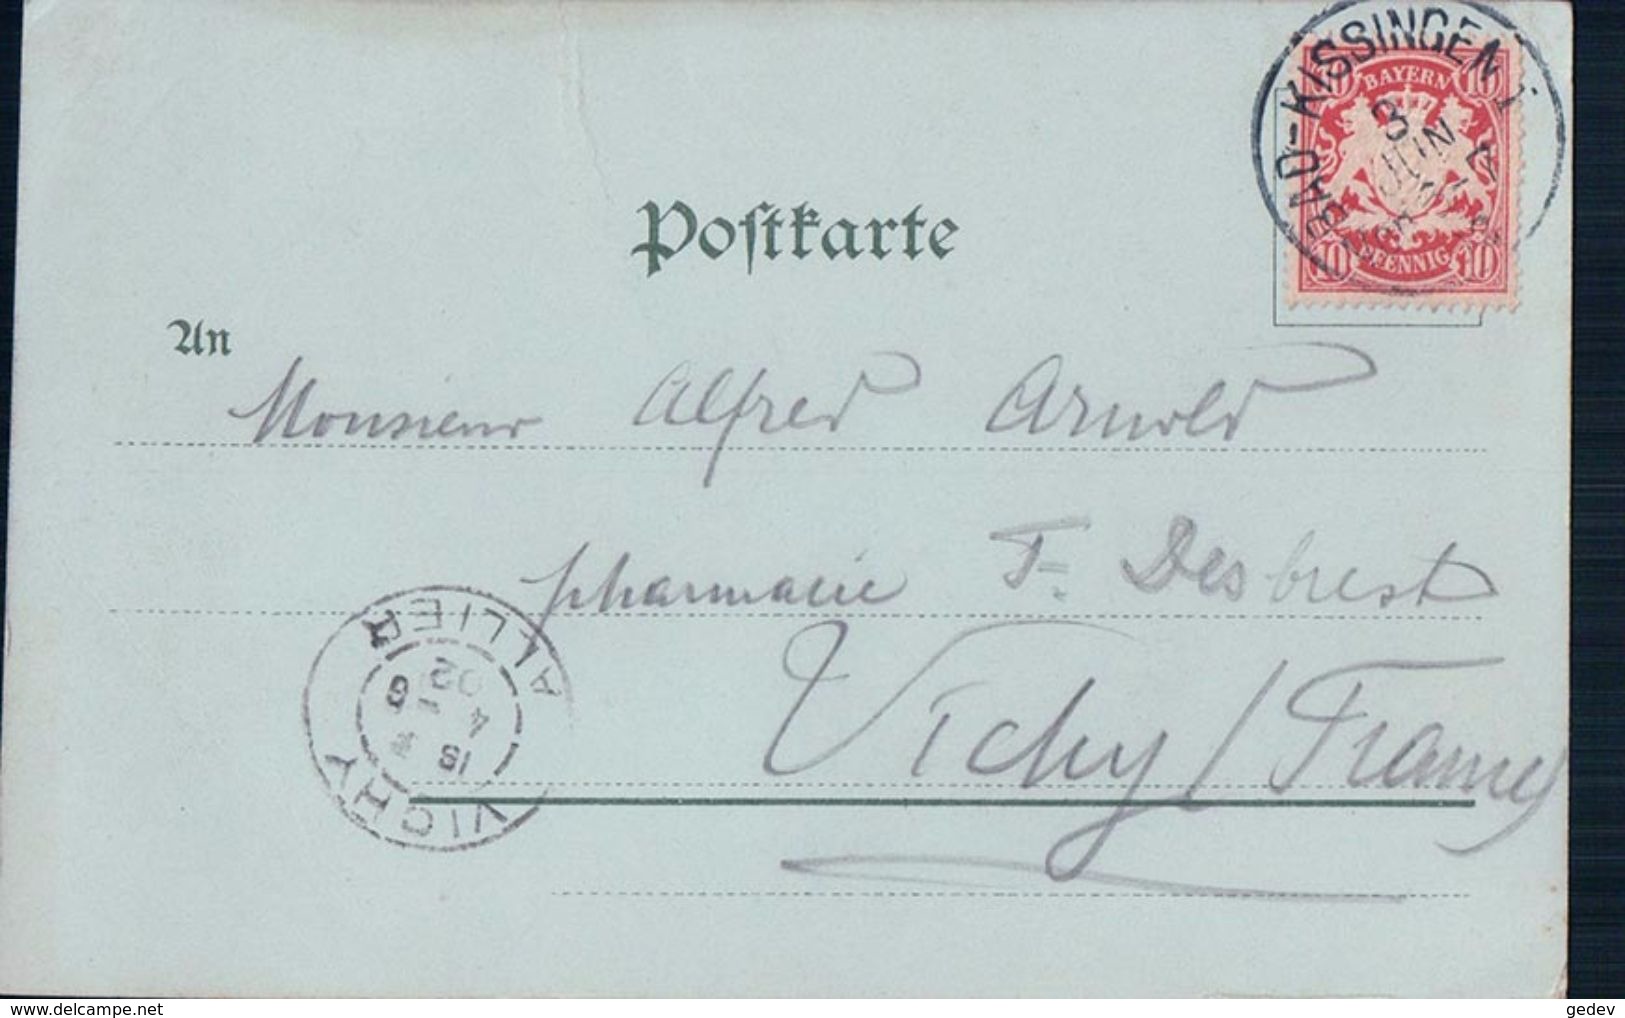 BAD-KISSINGEN I
3
JUN
10 BAYERN 10
10 PFENNIG 10
Postkarte
An
Monsieur Alfred Arnold
pharmacie F. Desbrest
Vichy / France
VICHY
4 6
02
ALLIER
gedev